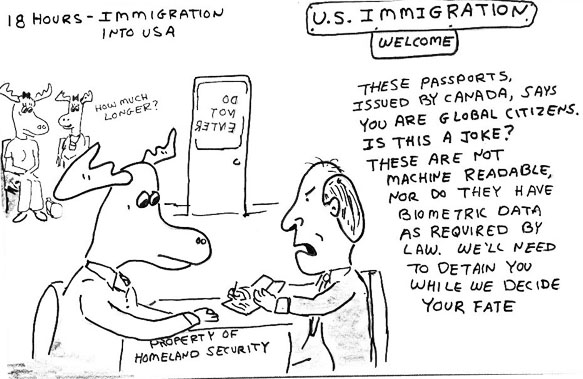 18 HOURS - IMMIGRATION
INTO USA
U.S. IMMIGRATION
WELCOME
HOW MUCH
LONGER?
DO
NOT
ENTER
THESE PASSPORTS,
ISSUED BY CANADA, SAYS
YOU ARE GLOBAL CITIZENS.
IS THIS A JOKE?
THESE ARE NOT
MACHINE READABLE,
NOR DO THEY HAVE
BIOMETRIC DATA
AS REQUIRED BY
LAW. WE'LL NEED
TO DETAIN YOU
WHILE WE DECIDE
YOUR FATE
PROPERTY OF
HOMELAND SECURITY